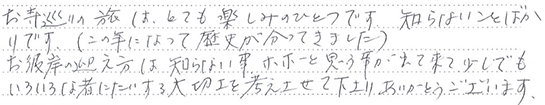 お寺巡りの旅は、とても楽しみのひとつです 知らないことばか
りです。(この年になって歴史が分ってきました)
お彼岸の迎え方は知らない事、ホホーと思う事が出て来て少しでも
いろいろな者にたいする大切さを考えさせて下さりありがとうございます。